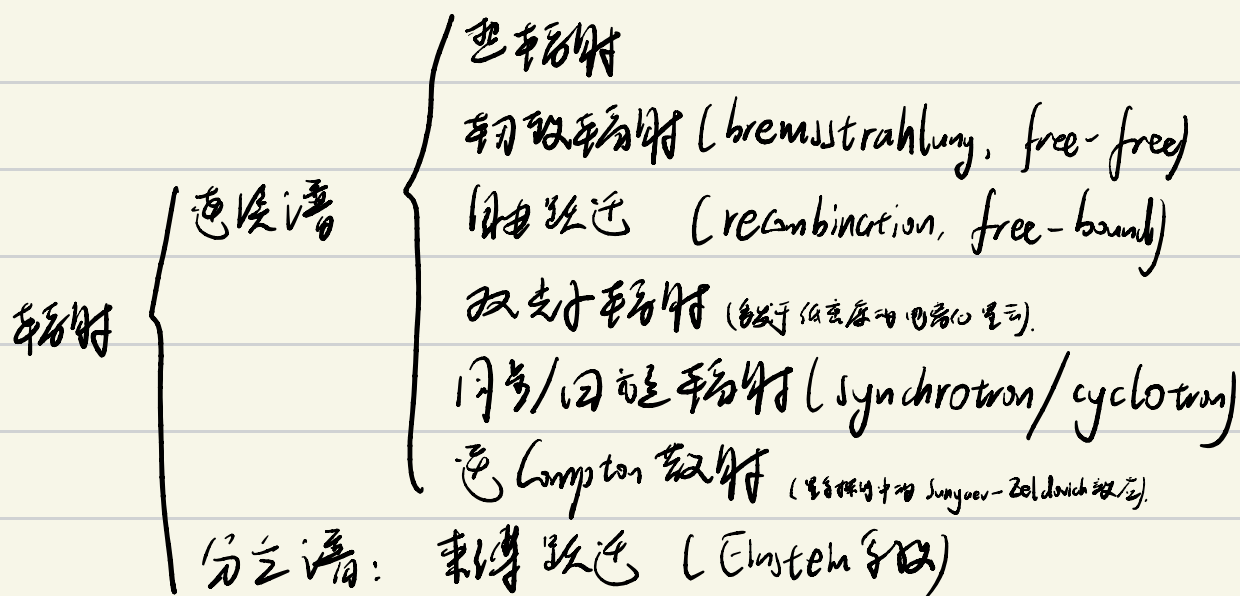 热辐射
轫致辐射 (bremsstrahlung, free-free)
连续谱
自由跃迁 (recombination, free-bound)
双光子辐射 (多发于低密度的电离化星云).
辐射
同步/回旋辐射 (synchrotron/cyclotron)
逆 Compton 散射 (中的 Sunyaev-Zeldovich 效应).
分立谱: 束缚跃迁 (Einstein 系数)